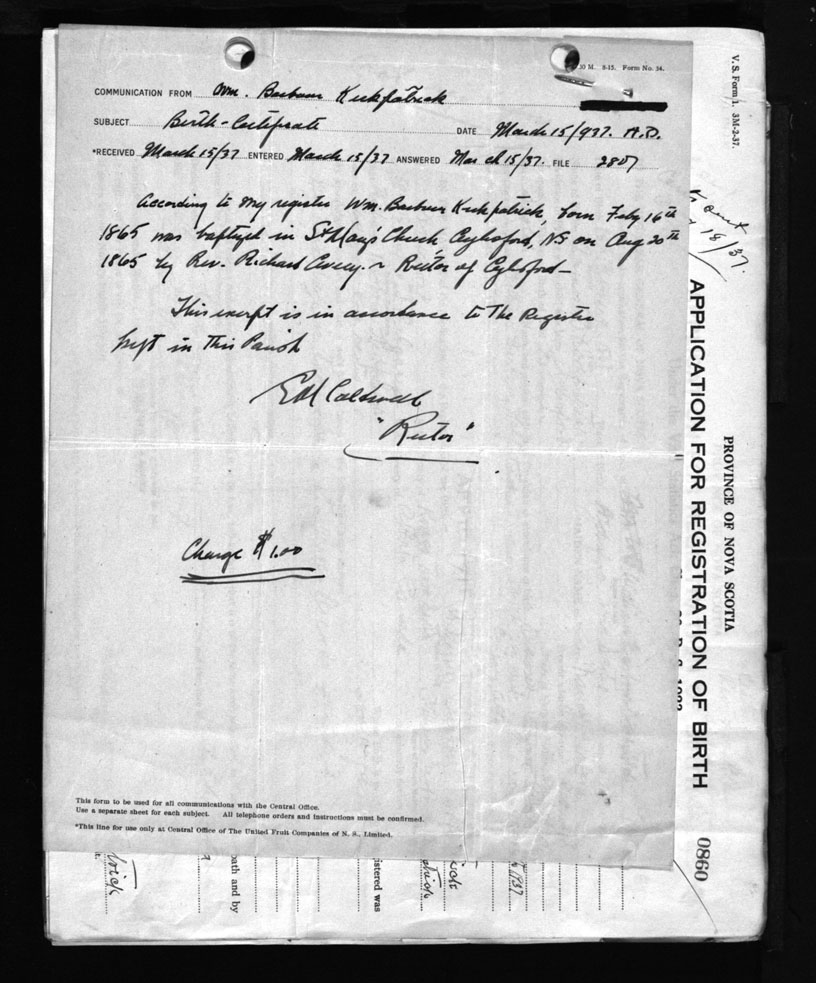 50 M. 8-15. Form No. 34.
COMMUNICATION FROM Wm. Barbour Kirkpatrick
SUBJECT Birth-Certificate DATE March 15/937. A.D.
*RECEIVED March 15/37 ENTERED March 15/37 ANSWERED March 15/37. FILE
According to my register Wm. Barbour Kirkpatrick, born Feby 16th
1865 was baptyzed in St Mary's Church Aylesford, NS on Aug 20th
1865 by Rev. Richard Avery. ~ Rector of Aylesford—
This exerpt is in accordance to The Register
kept in this Parish
Caldwell
"Rector"
Charge $1.00
This form to be used for all communications with the Central Office.
Use a separate sheet for each subject. All telephone orders and instructions must be confirmed.
*This line for use only at Central Office of The United Fruit Companies of N. S., Limited.
V. S. Form 1. 3M-2-37.
18/37.
PROVINCE OF NOVA SCOTIA
APPLICATION FOR REGISTRATION OF BIRTH
0860
oath and by
istered was
1937